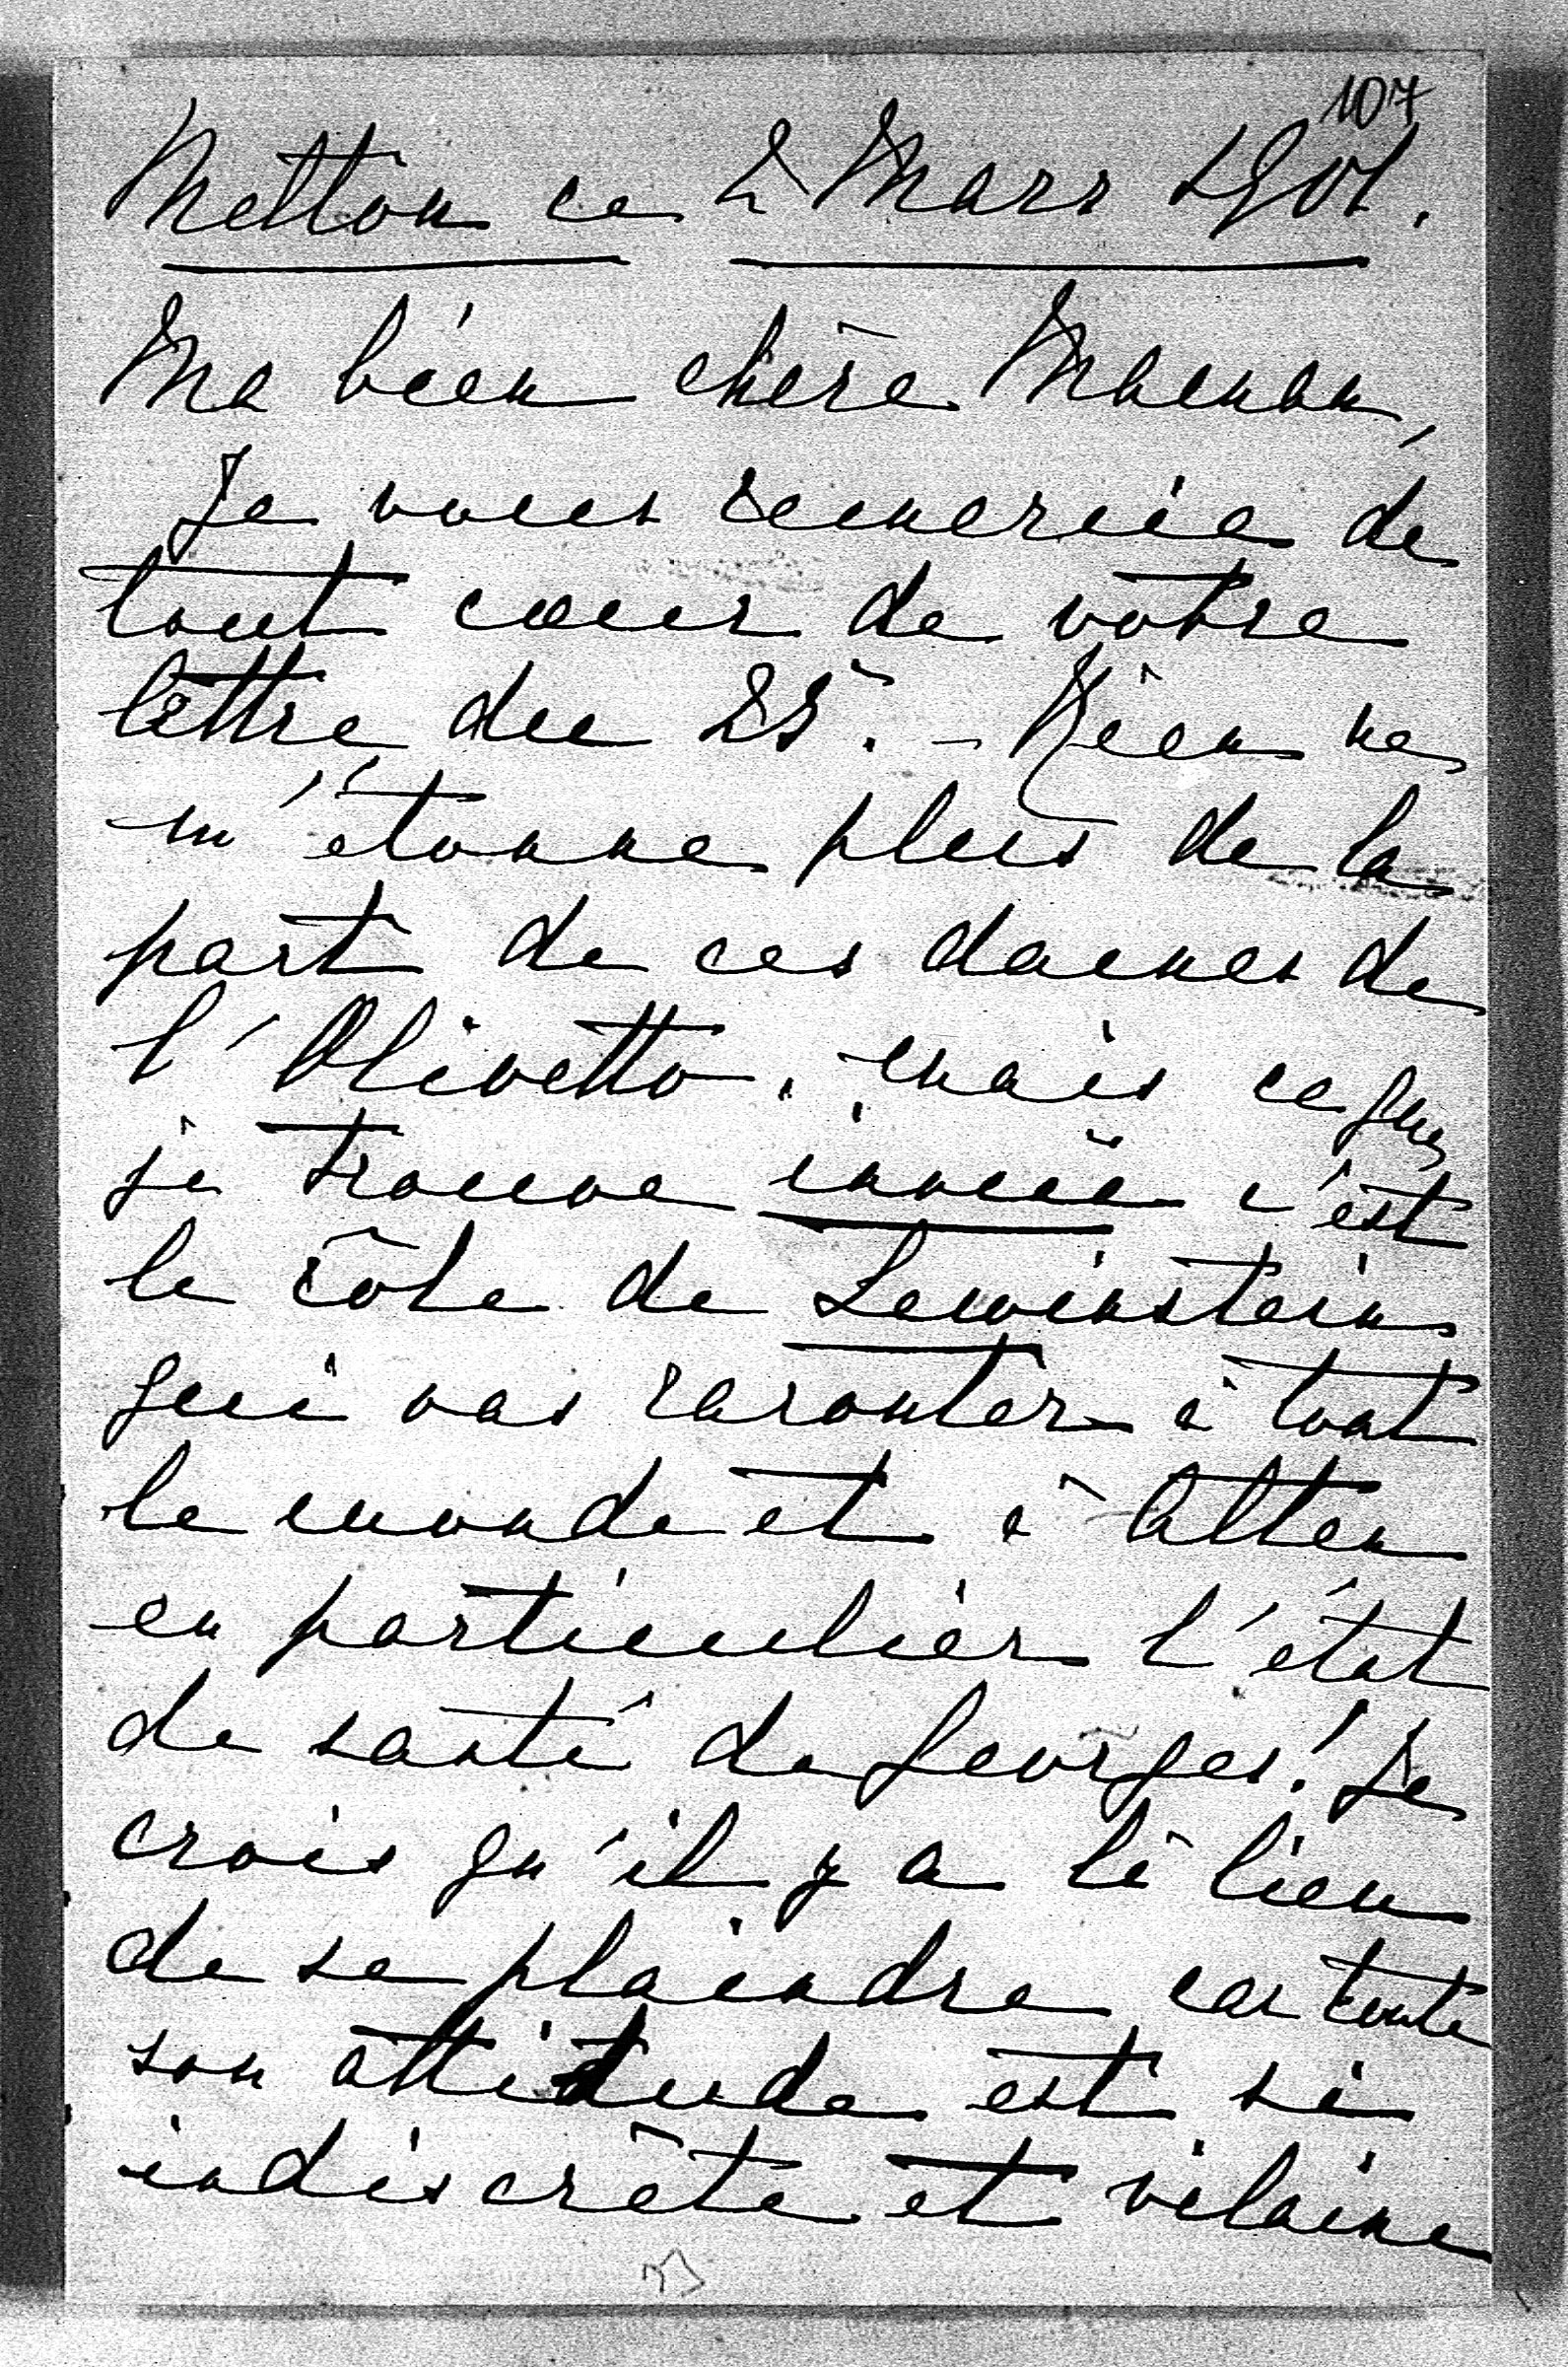 107
Metton ce 2 Mars 1901.
Ma bien chère Maman,
Je vous remercie de
tout cœur de votre
lettre du 25. – Rien ne
m'étonne plus de la
part de ces dames de
l'Olivetto. mais ce que
je trouve inouïe c'est
le rôle de Lewinstein
qui vas raconter à tout
le monde et à Alten
en particulier l'état
de santé de Georges! Je
crois qu'il y a là lieu
de se plaindre car toute
son attitude est si
indiscrète et vilaine